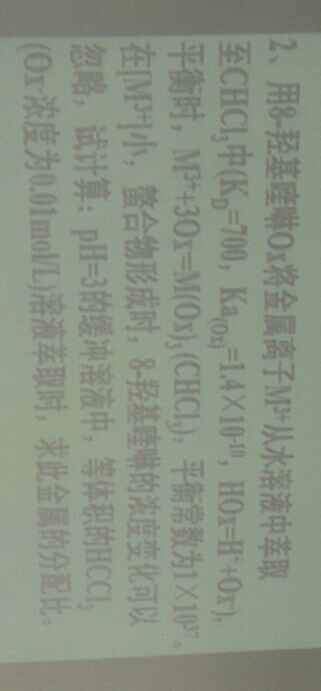 2、用8-羟基喹啉Ox将金属离子M³⁺从水溶液中萃取
至CHCl₃中(K_D=700，Ka(Ox)=1.4×10⁻¹⁰，HOx=H⁺+Ox⁻)，
平衡时，M³⁺+3Ox⁻=M(Ox)₃(CHCl₃)，平衡常数为1×10³⁷。
在[M³⁺]小，螯合物形成时，8-羟基喹啉的浓度变化可以
忽略，试计算：pH=3的缓冲溶液中，等体积的HCCl₃
(Ox⁻浓度为0.01mol/L)溶液萃取时，求此金属的分配比。